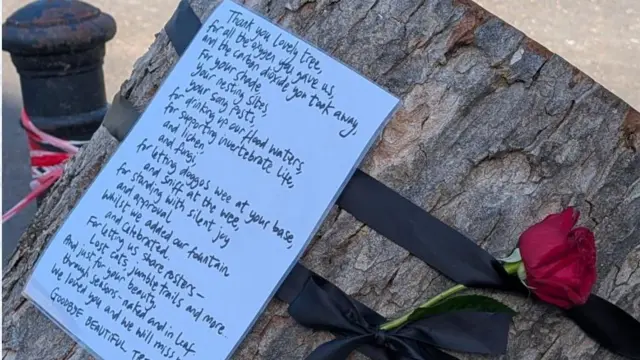 Thank you Lovely tree,
for all the oxygen you gave us,
and the carbon dioxide you took away,
For your shade
Your nesting sites,
your song posts
for drinking up our flood waters,
for supporting invertebrate life,
and lichen
and fungi,
for letting doggos wee at your base,
and sniff at the wee,
for standing with silent joy
and approval
whilst we added our fountain
and celebrated.
For letting us share posters -
Lost cats, jumble trails and more.
And just for your beauty
through seasons - naked and in leaf
We loved you and we will miss
GOODBYE BEAUTIFUL